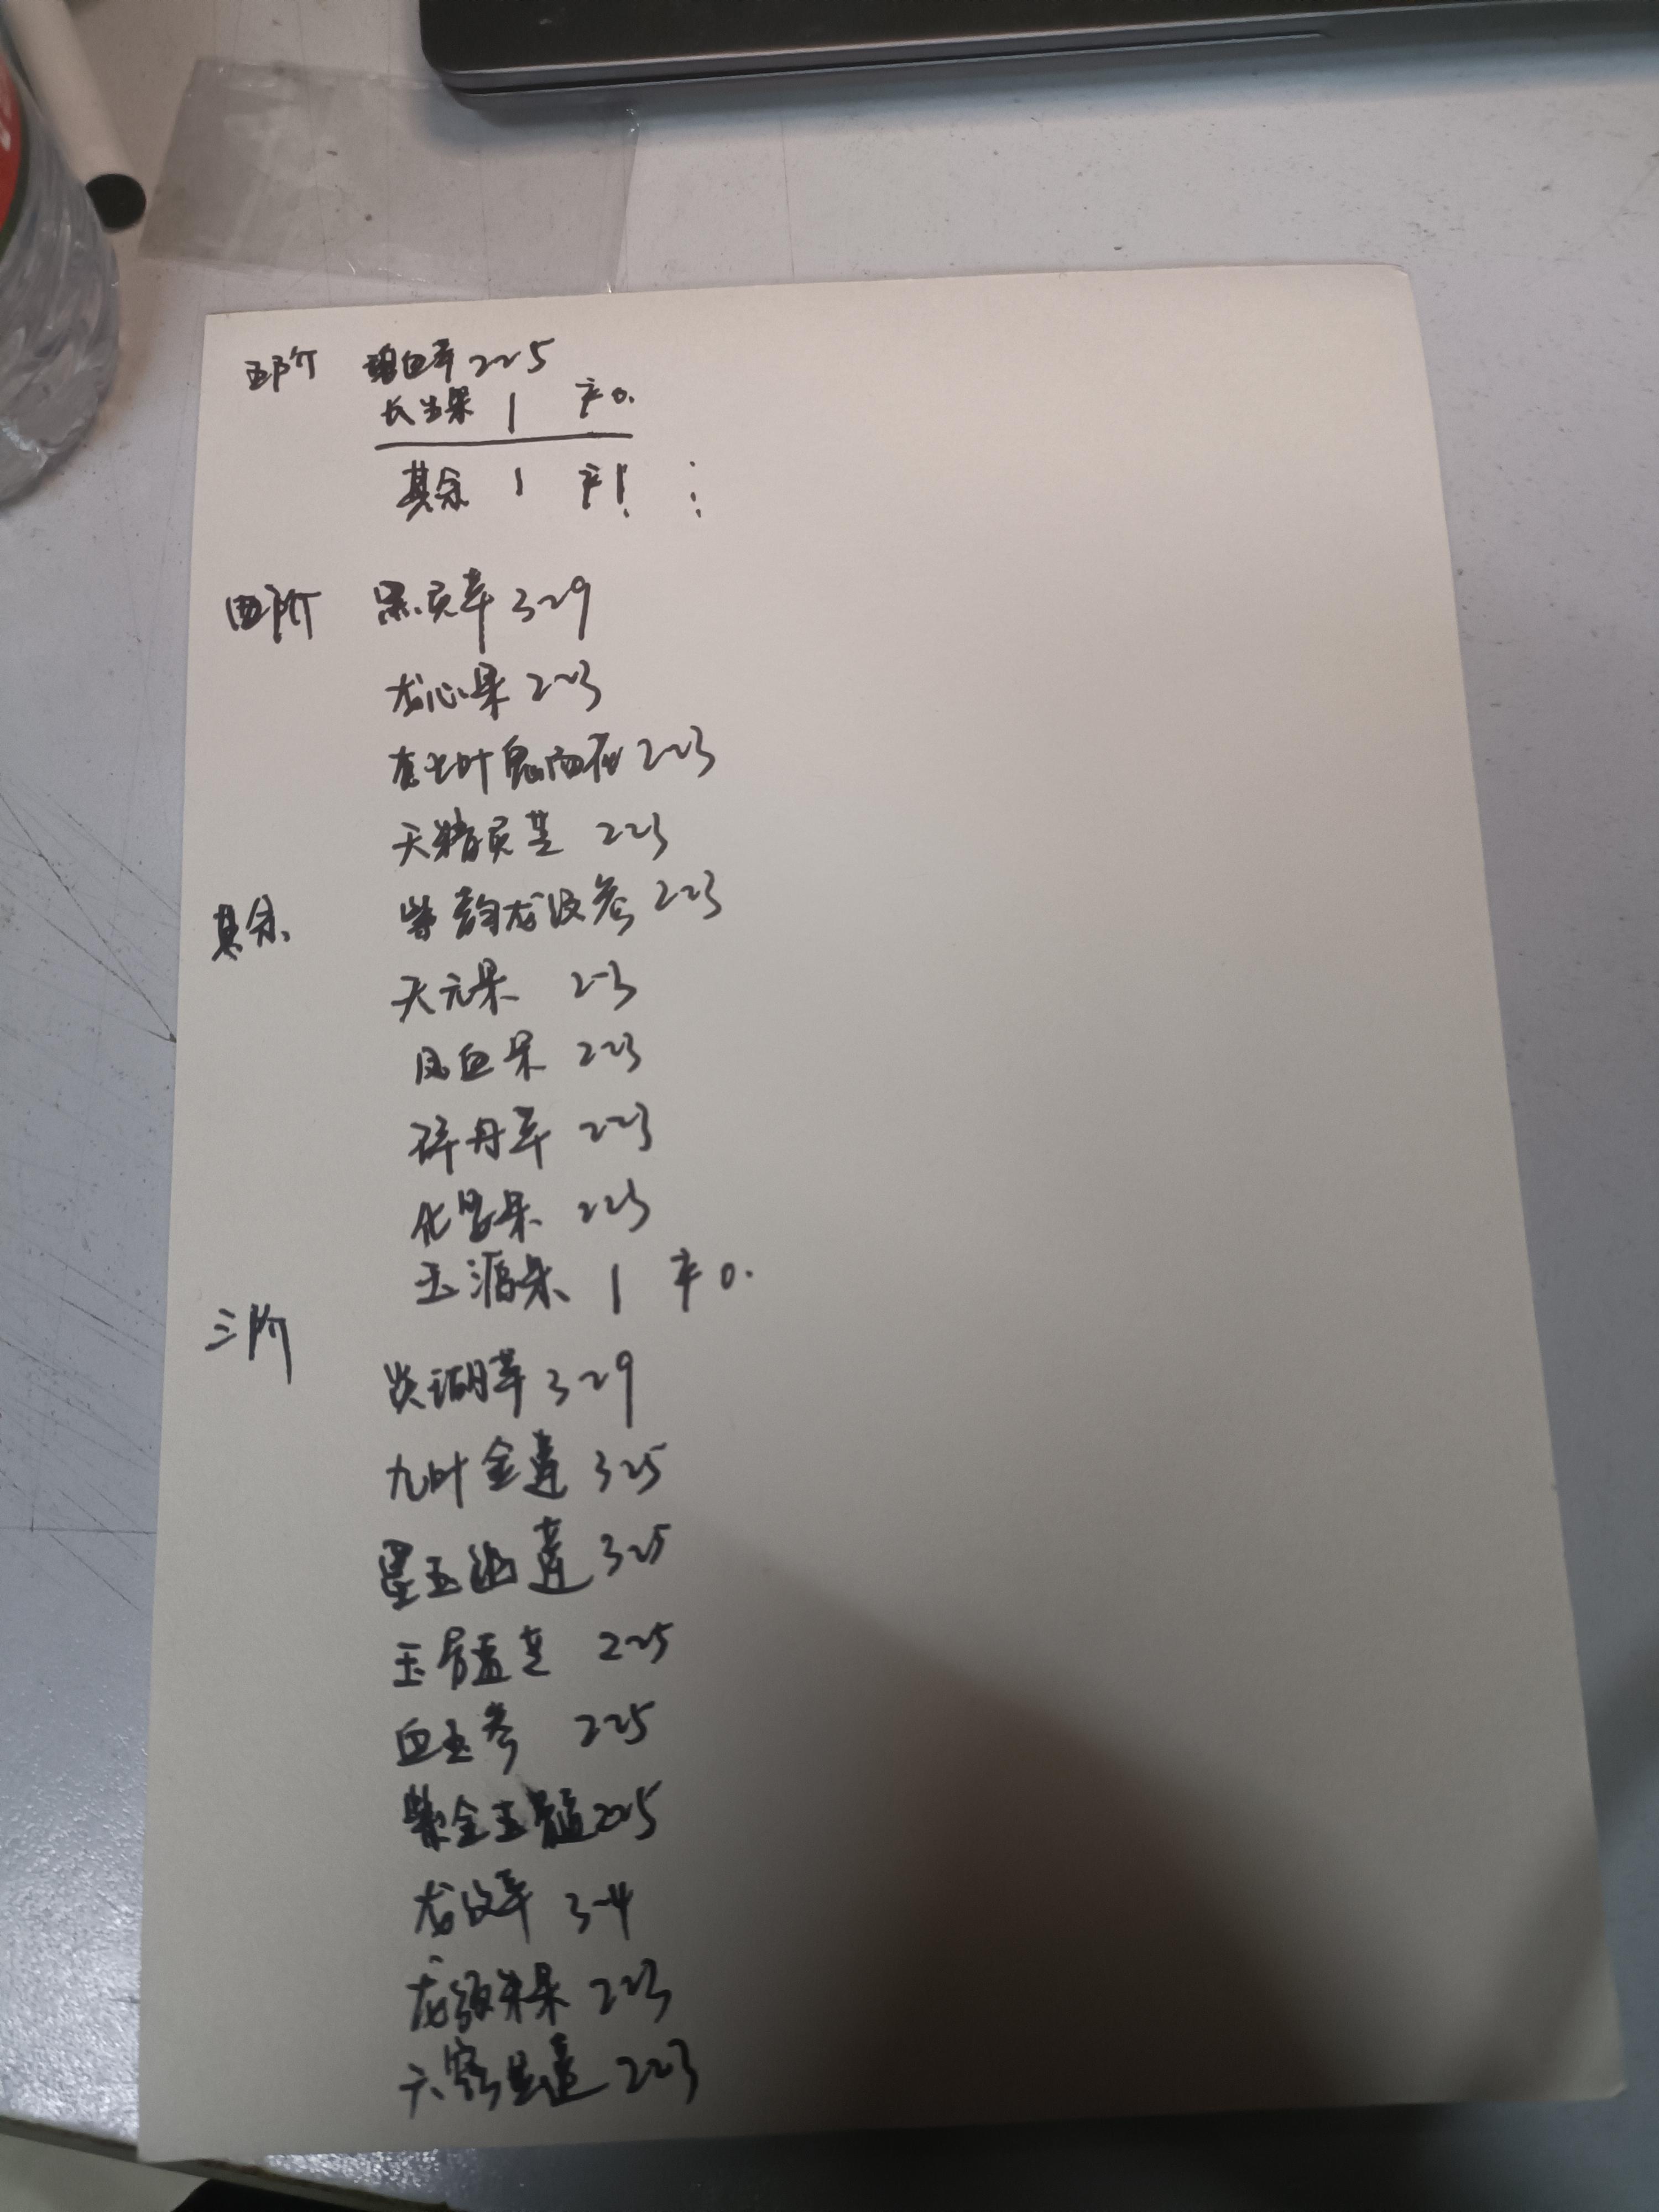 五阶 碧血草 2~5
长生果 1 产0.
其余 1 产1
四阶 黑灵草 3~9
龙心果 2~3
七叶鬼面花 2~3
天精灵芝 2~3
其余 紫韵龙皮参 2~3
天元果 2~3
凤血果 2~3
碎丹草 2~3
化婴果 2~3
玉源果 1 产0.
三阶
炎湖草 3~9
九叶金莲 3~5
墨玉幽莲 3~5
玉髓芝 2~5
血玉参 2~5
紫金玉髓 2~5
龙纹草 3~4
龙须朱果 2~3
六窍星莲 2~3